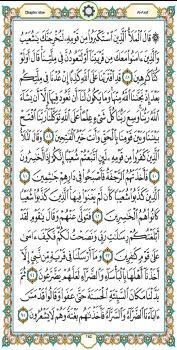 Chapter nine Al-Araf
۞ قَالَ ٱلْمَلَأُ ٱلَّذِينَ ٱسْتَكْبَرُوا۟ مِن قَوْمِهِۦ لَنُخْرِجَنَّكَ يَٰشُعَيْبُ
وَٱلَّذِينَ ءَامَنُوا۟ مَعَكَ مِن قَرْيَتِنَآ أَوْ لَتَعُودُنَّ فِى مِلَّتِنَا ۚ قَالَ أَوَلَوْ
كُنَّا كَٰرِهِينَ ٨٨ قَدِ ٱفْتَرَيْنَا عَلَى ٱللَّهِ كَذِبًا إِنْ عُدْنَا فِى مِلَّتِكُم
بَعْدَ إِذْ نَجَّىٰنَا ٱللَّهُ مِنْهَا ۚ وَمَا يَكُونُ لَنَآ أَن نَّعُودَ فِيهَآ إِلَّآ أَن يَشَآءَ
ٱللَّهُ رَبُّنَا ۚ وَسِعَ رَبُّنَا كُلَّ شَىْءٍ عِلْمًا ۚ عَلَى ٱللَّهِ تَوَكَّلْنَا ۚ رَبَّنَا ٱفْتَحْ
بَيْنَنَا وَبَيْنَ قَوْمِنَا بِٱلْحَقِّ وَأَنتَ خَيْرُ ٱلْفَٰتِحِينَ ٨٩ وَقَالَ ٱلْمَلَأُ
ٱلَّذِينَ كَفَرُوا۟ مِن قَوْمِهِۦ لَئِنِ ٱتَّبَعْتُمْ شُعَيْبًا إِنَّكُمْ إِذًا لَّخَٰسِرُونَ
٩٠ فَأَخَذَتْهُمُ ٱلرَّجْفَةُ فَأَصْبَحُوا۟ فِى دَارِهِمْ جَٰثِمِينَ ٩١
ٱلَّذِينَ كَذَّبُوا۟ شُعَيْبًا كَأَن لَّمْ يَغْنَوْا۟ فِيهَا ۚ ٱلَّذِينَ كَذَّبُوا۟ شُعَيْبًا
كَانُوا۟ هُمُ ٱلْخَٰسِرِينَ ٩٢ فَتَوَلَّىٰ عَنْهُمْ وَقَالَ يَٰقَوْمِ لَقَدْ
أَبْلَغْتُكُمْ رِسَٰلَٰتِ رَبِّى وَنَصَحْتُ لَكُمْ ۖ فَكَيْفَ ءَاسَىٰ
عَلَىٰ قَوْمٍ كَٰفِرِينَ ٩٣ وَمَآ أَرْسَلْنَا فِى قَرْيَةٍ مِّن نَّبِىٍّ إِلَّآ
أَخَذْنَآ أَهْلَهَا بِٱلْبَأْسَآءِ وَٱلضَّرَّآءِ لَعَلَّهُمْ يَضَّرَّعُونَ ٩٤ ثُمَّ
بَدَّلْنَا مَكَانَ ٱلسَّيِّئَةِ ٱلْحَسَنَةَ حَتَّىٰ عَفَوا۟ وَّقَالُوا۟ قَدْ مَسَّ
ءَابَآءَنَا ٱلضَّرَّآءُ وَٱلسَّرَّآءُ فَأَخَذْنَٰهُم بَغْتَةً وَهُمْ لَا يَشْعُرُونَ ٩٥
162